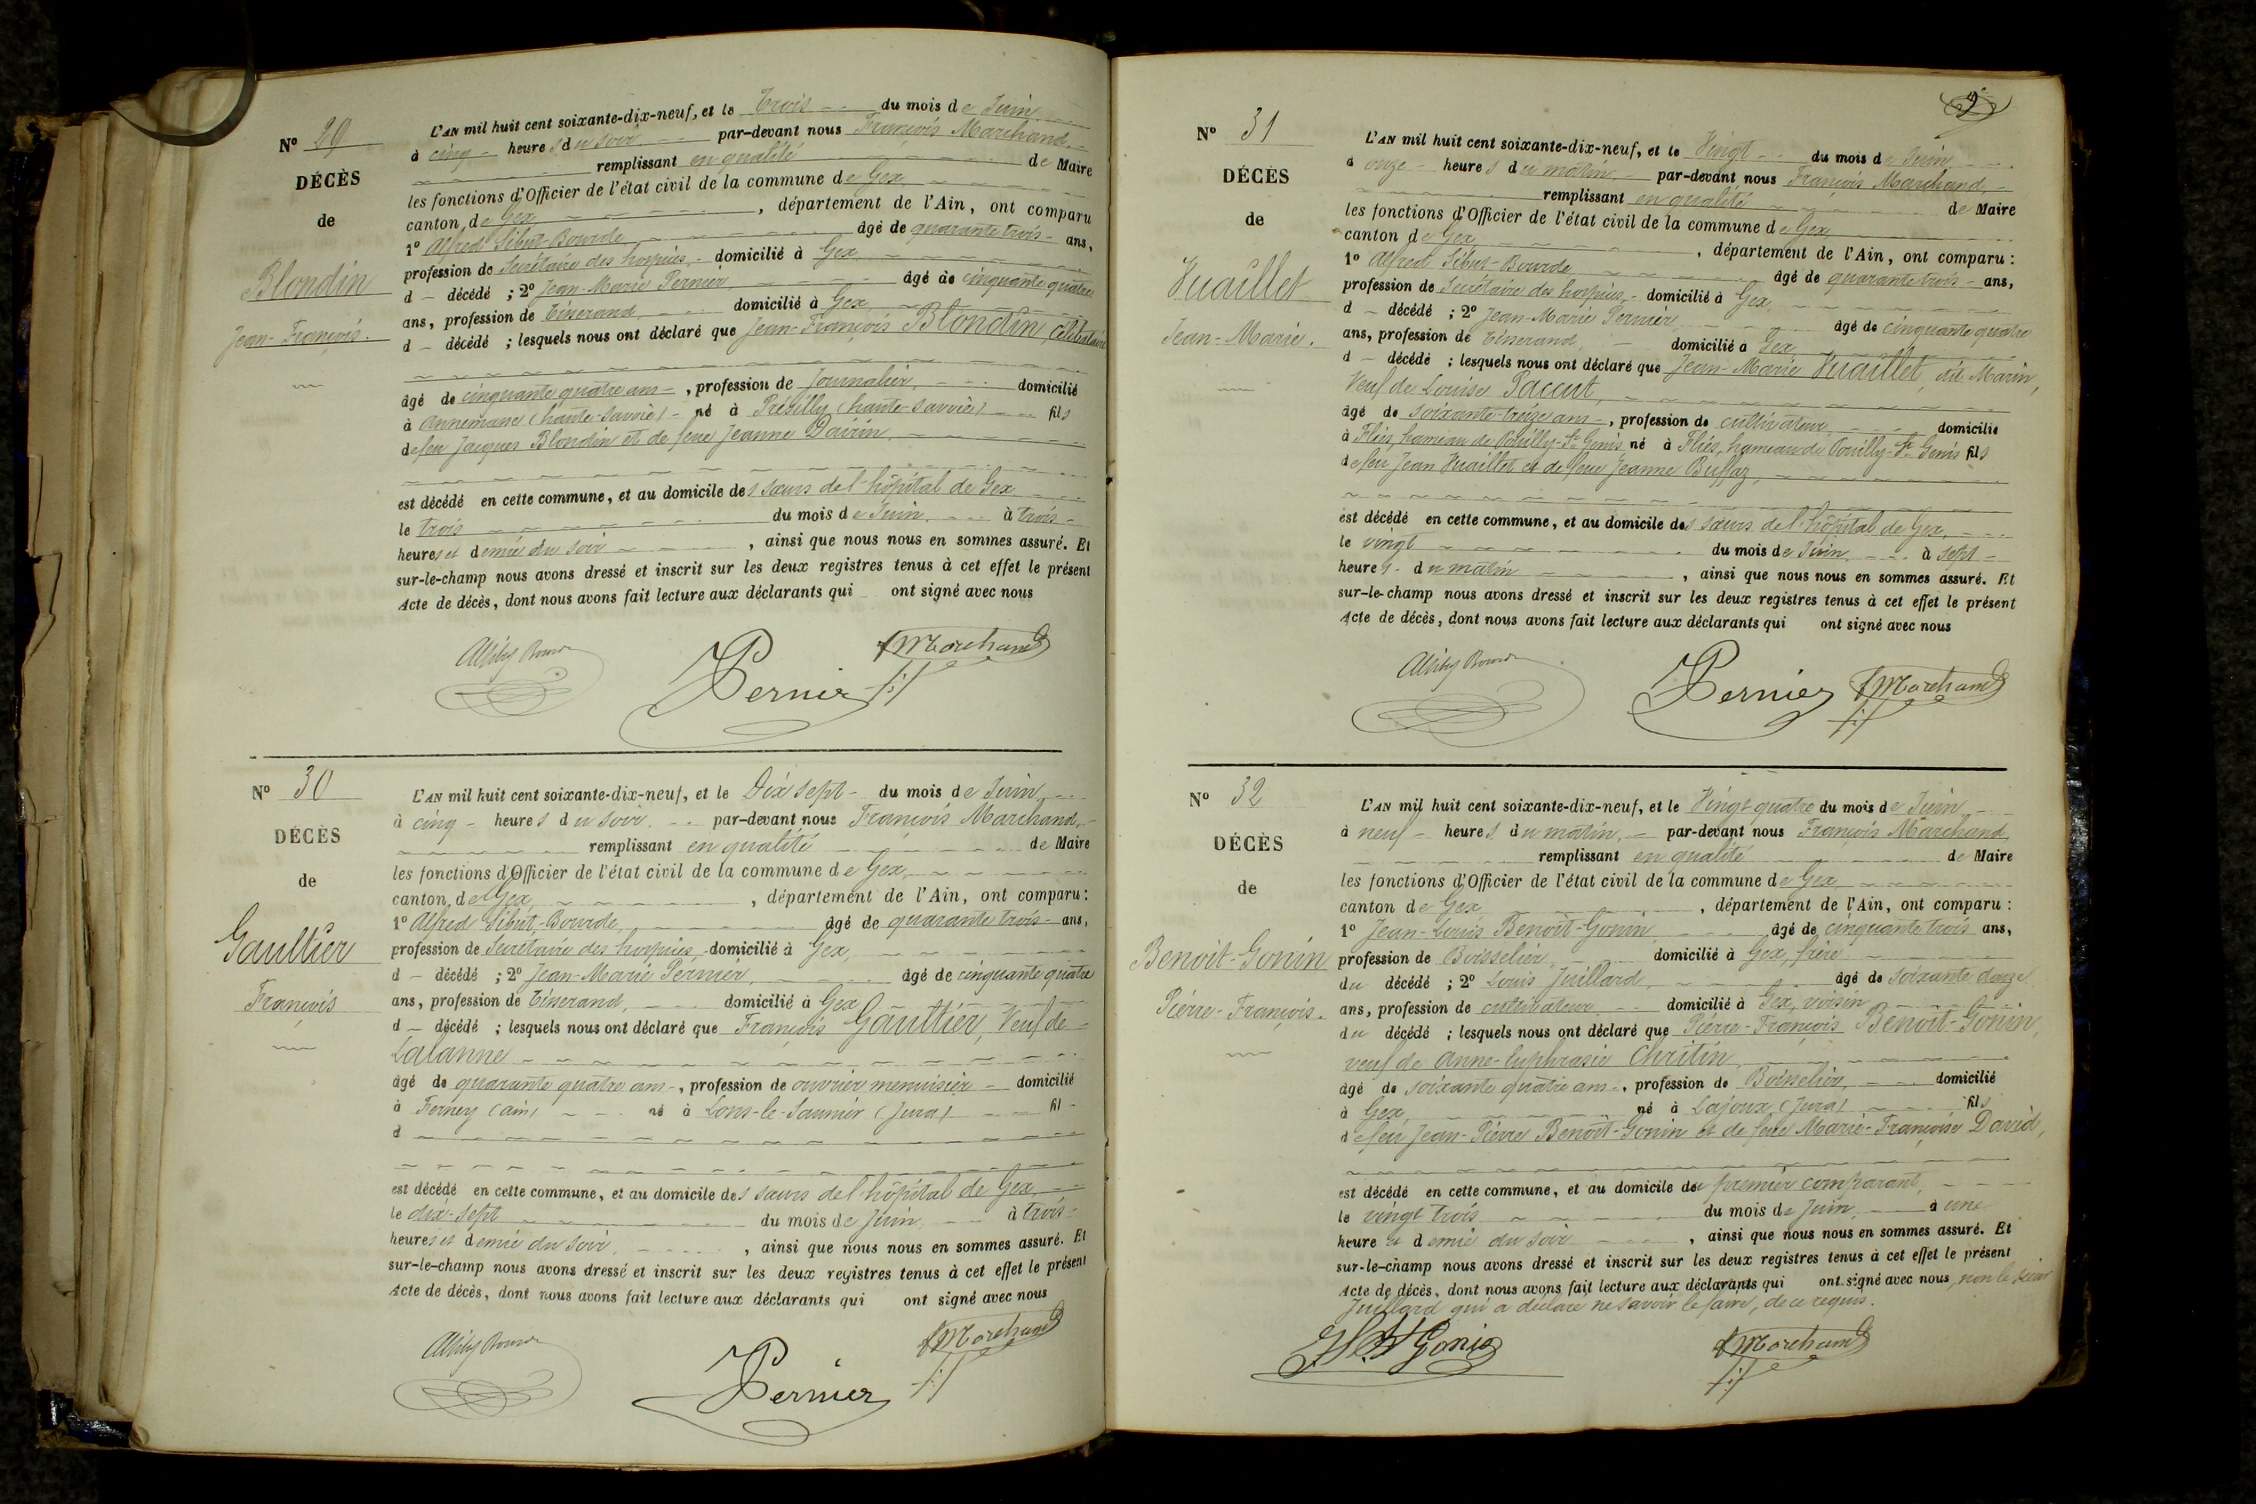 Nº 29
DÉCÈS
de
Blondin
Jean-François.
L'AN mil huit cent soixante-dix-neuf, et le Trois du mois de Juin
à cinq heures du soir par-devant nous François Marchand,
remplissant en qualité de Maire
les fonctions d'Officier de l'état civil de la commune de Gex
canton de Gex, département de l'Ain, ont comparu
1º Alfred Sibut-Bourde âgé de quarante trois ans,
profession de Secrétaire des hospices, domicilié à Gex,
d décédé ; 2º Jean-Marie Pernier, âgé de cinquante quatre
ans, profession de Tisserand, domicilié à Gex,
d décédé ; lesquels nous ont déclaré que Jean-François Blondin, célibataire
âgé de cinquante quatre ans, profession de Journalier, domicilié
à Annemasse (haute-savoie) né à Présilly (haute-savoie) fils
de feu Jacques Blondin et de feue Jeanne Dairin,
est décédé en cette commune, et au domicile des sœurs de l'hôpital de Gex
le trois du mois de Juin, à trois
heures et demie du soir, ainsi que nous nous en sommes assuré. Et
sur-le-champ nous avons dressé et inscrit sur les deux registres tenus à cet effet le présent
Acte de décès, dont nous avons fait lecture aux déclarants qui ont signé avec nous
Pernier
Marchand
Nº 30
DÉCÈS
de
Gaultier
François
L'AN mil huit cent soixante-dix-neuf, et le Dix sept du mois de Juin
à cinq heures du soir par-devant nous François Marchand,
remplissant en qualité de Maire
les fonctions d'Officier de l'état civil de la commune de Gex,
canton de Gex, département de l'Ain, ont comparu :
1º Alfred Sibut-Bourde, âgé de quarante trois ans,
profession de Secrétaire des hospices, domicilié à Gex,
d décédé ; 2º Jean-Marie Pernier, âgé de cinquante quatre
ans, profession de Tisserand, domicilié à Gex
d décédé ; lesquels nous ont déclaré que François Gaultier, Veuf de
Lalanne
âgé de quarante quatre ans, profession de ouvrier menuisier domicilié
à Ferney (ain) né à Lons-le-Saunier (Jura) fil
d
est décédé en cette commune, et au domicile des sœurs de l'hôpital de Gex,
le dix-sept du mois de Juin, à trois
heures et demie du soir, ainsi que nous nous en sommes assuré. Et
sur-le-champ nous avons dressé et inscrit sur les deux registres tenus à cet effet le présent
Acte de décès, dont nous avons fait lecture aux déclarants qui ont signé avec nous
Pernier
Marchand
9
Nº 31
DÉCÈS
de
Vuaillet
Jean-Marie.
L'AN mil huit cent soixante-dix-neuf, et le Vingt du mois de Juin
à onze heures du matin, par-devant nous François Marchand,
remplissant en qualité de Maire
les fonctions d'Officier de l'état civil de la commune de Gex
canton de Gex, département de l'Ain, ont comparu :
1º Alfred Sibut-Bourde âgé de quarante trois ans,
profession de Secrétaire des hospices, domicilié à Gex,
d décédé ; 2º Jean-Marie Pernier, âgé de cinquante quatre
ans, profession de Tisserand, domicilié à Gex
d décédé ; lesquels nous ont déclaré que Jean-Marie Vuaillet, dit Marin,
Veuf de Louise Paccut,
âgé de soixante-treize ans, profession de cultivateur, domicilié
à Fliés, hameau de Pouilly-St Genis né à Fliés, hameau de Pouilly-St Genis fils
de feu Jean Vuaillet et de feue Jeanne Buffaz,
est décédé en cette commune, et au domicile des sœurs de l'hôpital de Gex,
le vingt du mois de Juin à sept
heures du matin, ainsi que nous nous en sommes assuré. Et
sur-le-champ nous avons dressé et inscrit sur les deux registres tenus à cet effet le présent
Acte de décès, dont nous avons fait lecture aux déclarants qui ont signé avec nous
Pernier
Marchand
Nº 32
DÉCÈS
de
Benoit-Gonin
Pierre-François.
L'AN mil huit cent soixante-dix-neuf, et le Vingt quatre du mois de Juin
à neuf heures du matin, par-devant nous François Marchand,
remplissant en qualité de Maire
les fonctions d'Officier de l'état civil de la commune de Gex,
canton de Gex, département de l'Ain, ont comparu :
1º Jean-Louis Benoit-Gonin, âgé de cinquante trois ans,
profession de Boisselier, domicilié à Gex, frère
du décédé ; 2º Louis Juillard, âgé de soixante douze
ans, profession de cultivateur domicilié à Gex, voisin
du décédé ; lesquels nous ont déclaré que Pierre-François Benoit-Gonin,
veuf de Anne-Euphrasie Chritin,
âgé de soixante quatre ans, profession de Boisselier, domicilié
à Gex né à Lajoux (Jura) fils
de feu Jean-Pierre Benoit-Gonin et de feue Marie-Françoise David,
est décédé en cette commune, et au domicile du premier comparant,
le vingt trois du mois de Juin, à une
heure et demie du soir, ainsi que nous nous en sommes assuré. Et
sur-le-champ nous avons dressé et inscrit sur les deux registres tenus à cet effet le présent
Acte de décès, dont nous avons fait lecture aux déclarants qui ont signé avec nous, non le sieur
Juillard qui a déclaré ne savoir le faire, de ce requis.
Gonin
Marchand